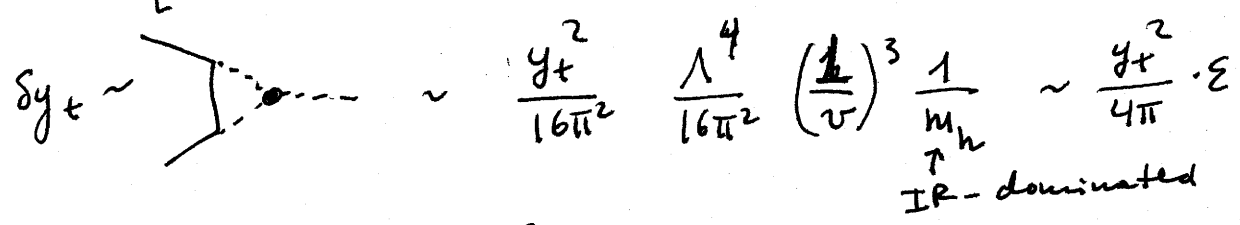 δy_t ~ ~ y_t^2/16π^2 Λ^4/16π^2 (1/v)^3 1/m_h ~ y_t^2/4π · ε
↑
IR-dominated